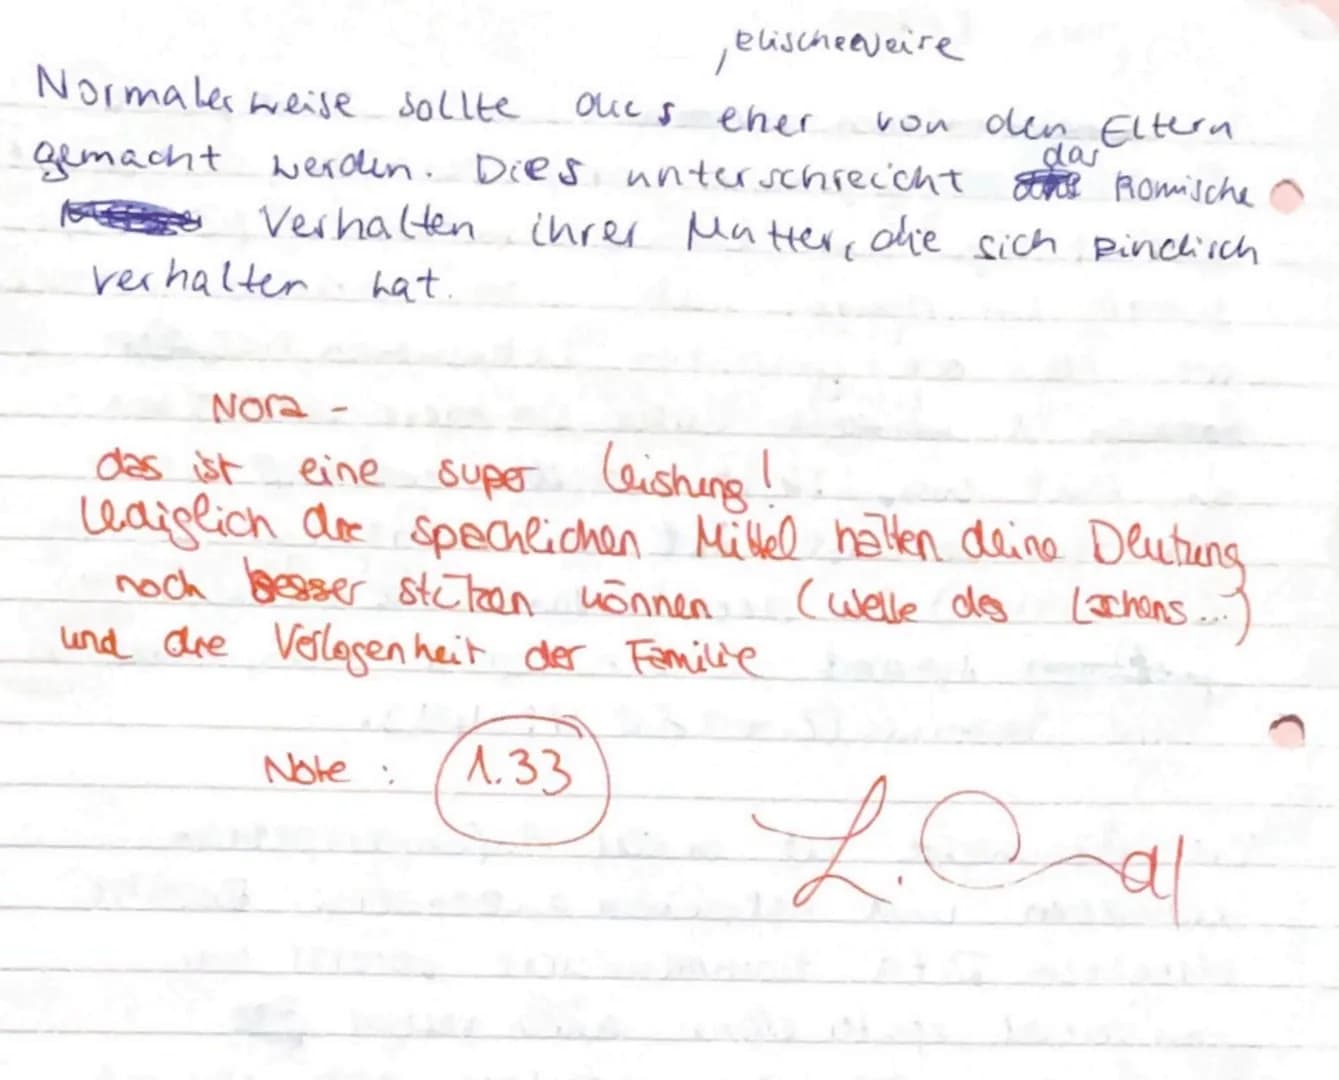 , klischeeweise
Normalerweise sollte dies eher von den Eltern
gemacht werden. Dies unterschreicht das Komische
Verhalten ihrer Mutter, die sich kindisch
verhalten hat.
Nora -
das ist eine super Leistung!
Lediglich die sprachlichen Mittel hätten deine Deutung
noch besser stützen können (Welle des Lachens...)
und die Verlogenheit der Familie
Note : 1.33